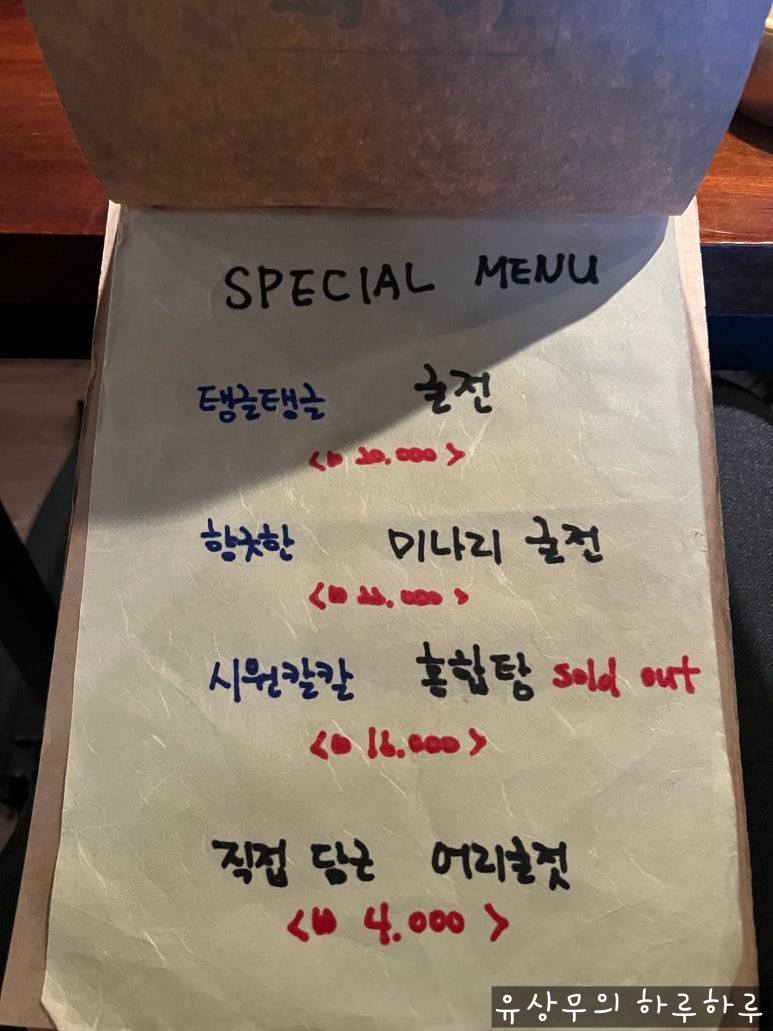 SPECIAL MENU
탱글탱글 굴전
<₩ 20.000>
향긋한 미나리 굴전
<₩ 22.000>
시원칼칼 홍합탕 sold out
<₩ 16.000>
직접 담근 어리굴젓
<₩ 4.000>
유상무의 하루하루